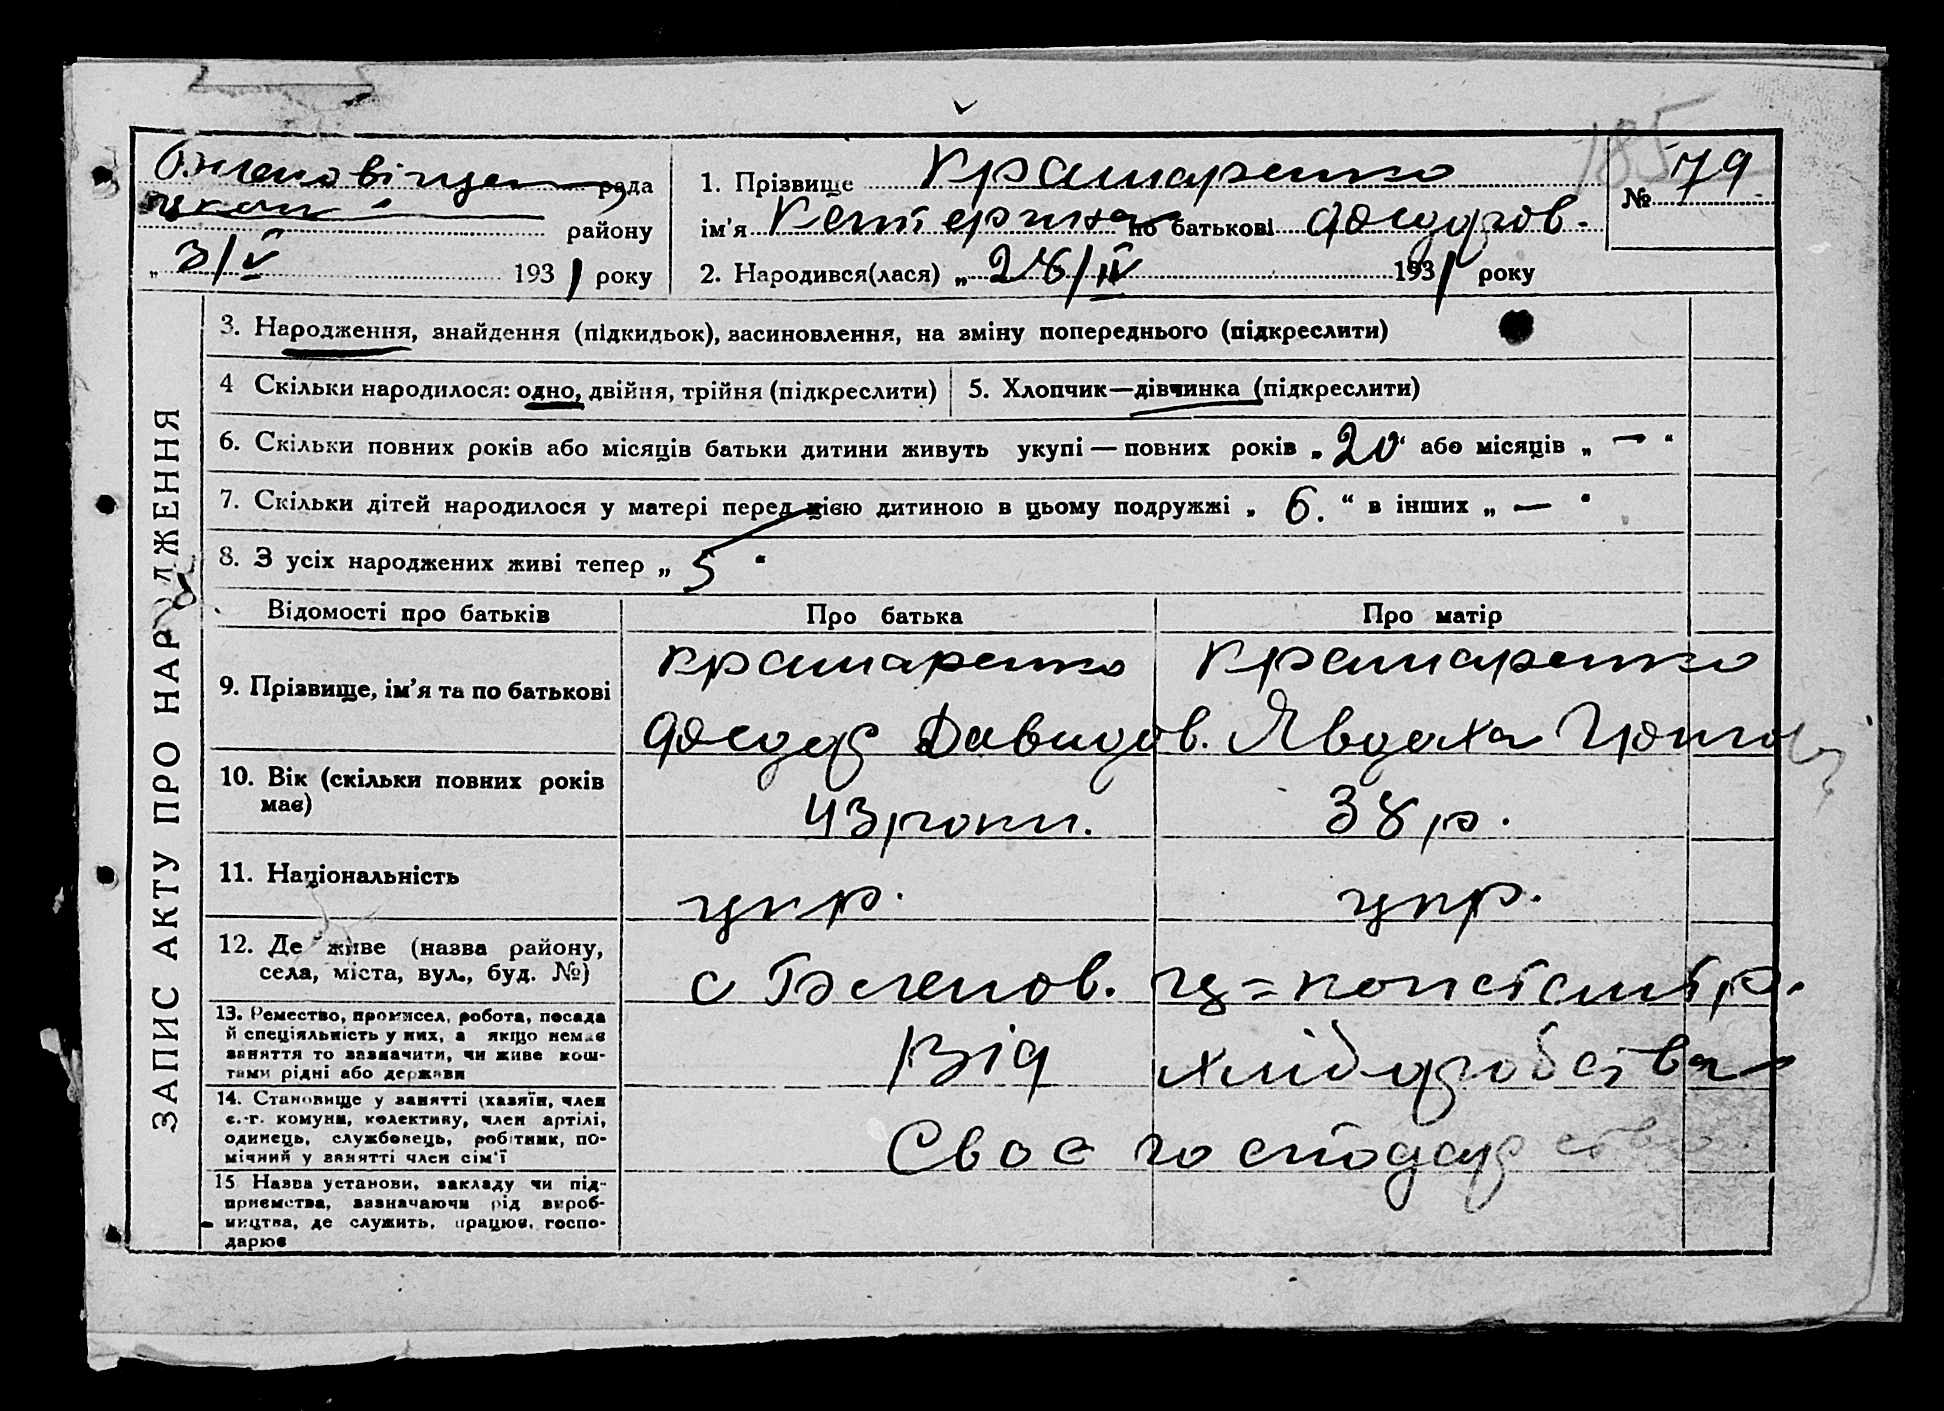 185
рада
району
„ 3/V 1931 року
1. Прізвище Крамаренко
ім'я Катерина по батькові Федоров.
№ 79
2. Народився(лася) „ 28/IV 1931 року
ЗАПИС АКТУ ПРО НАРОДЖЕННЯ
3. Народження, знайдення (підкидьок), засиновлення, на зміну попереднього (підкреслити)
4 Скільки народилося: одно, двійня, трійня (підкреслити)
5. Хлопчик—дівчинка (підкреслити)
6. Скільки повних років або місяців батьки дитини живуть укупі — повних років „ 20 “ або місяців „ — “
7. Скільки дітей народилося у матері перед цією дитиною в цьому подружжі „ 6. “ в інших „ — “
8. З усіх народжених живі тепер „ 5 “
Відомості про батьків
Про батька
Про матір
9. Прізвище, ім'я та по батькові
Крамаренко
Федор Давидов.
Крамаренко
Явдоха
10. Вік (скільки повних років
має)
43 роки.
38 р.
11. Національність
укр.
укр.
12. Де живе (назва району,
села, міста, вул., буд. №)
с
13. Ремество, промисел, робота, посада
й спеціяльність у них, а якщо немає
заняття то зазначити, чи живе кош-
тами рідні або держави
Від хліборобства
14. Становище у занятті (хазяїн, член
с.-г. комуни, колективу, член артілі,
одинець, службовець, робітник, по-
мічний у занятті член сім'ї
Своє господарство.
15 Назва установи, закладу чи під-
приємства, зазначаючи рід вироб-
ництва, де служить, працює, госпо-
дарює